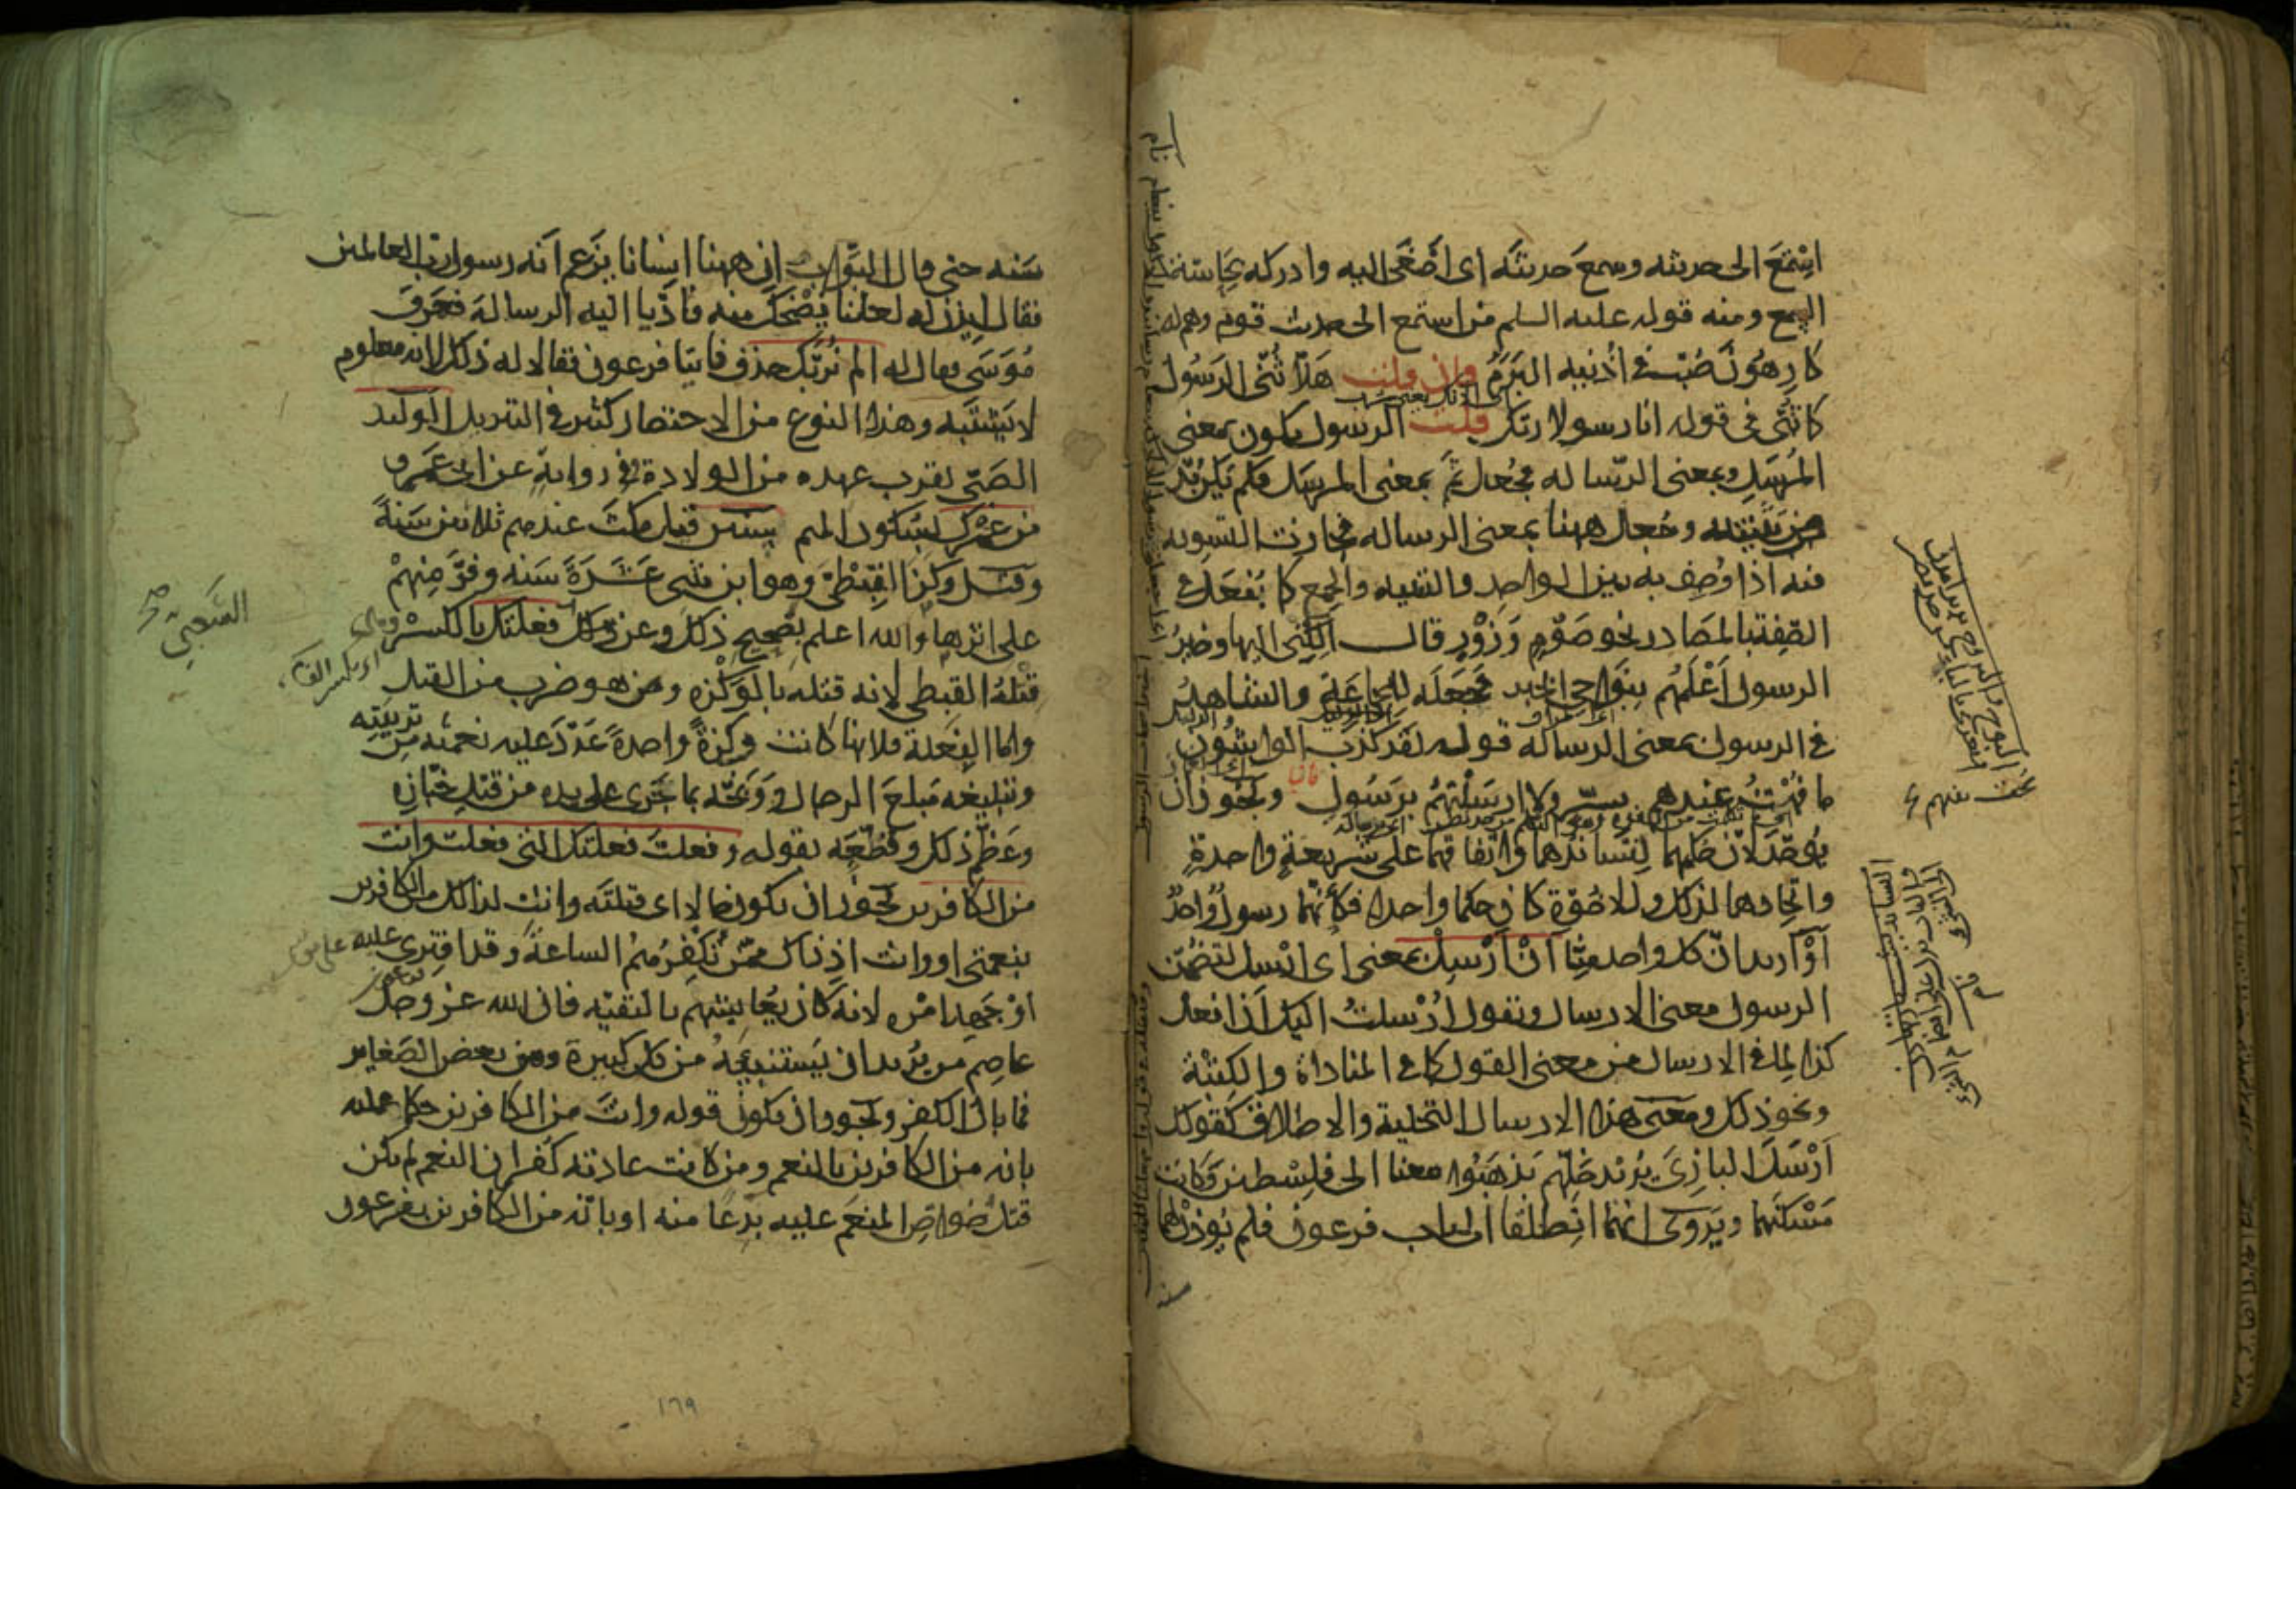 استمع الى حديثه وسمع حديثه اى اصغى اليه وادركه بحاسة
السمع ومنه قوله عليه السلم من استمع الى حديث قوم وهم له
كارهون صُبّ فى اذنيه البرم فان قلت هلّا ثنّى الرسول
كما ثنّى فى قوله انا رسولا ربّك قلت الرسول يكون بمعنى
المرسل وبمعنى الرسالة فجعل ثمّ بمعنى المرسل فلم يكن بدّ
من تثنيته وجعل ههنا بمعنى الرسالة فجازت التسوية
فيه اذا وصف به بين الواحد والتثنية والجمع كما يفعل فى
الصفة بالمصادر نحو صوم وزور قال الكنى اليها وخير
الرسول اعلمهم بنواحى الخبر فجعله للجماعة والشاهد
فى الرسول بمعنى الرسالة قوله لقد كذب الواشون
ما فهت عندهم بسرّ ولا ارسلتهم برسول ويجوز ان
يوحّد لانّ حكمهما لتساندهما واتفاقهما على شريعة واحدة
واتحادهما لذلك وللاخوّة كان حكما واحدا فكأنّهما رسول واحد
أو أريد انّ كل واحد منّا أن أرسل بمعنى اى ارسل لتضمّن
الرسول معنى الارسال وتقول ارسلت اليك أن افعل
كذا لما فى الارسال من معنى القول كما فى المناداة والكتبة
ونحو ذلك ومعنى هذا الارسال التخلية والاطلاق كقولك
أرسل البازى يريد خلّهم يذهبوا معنا الى فلسطين وكانت
مسكنهما ويروى انهما انطلقا الى باب فرعون فلم يؤذن لهما
سنه حتى قال البوّاب ان ههنا انسانا يزعم انه رسول رب العالمين
فقال ايذن له لعلنا نضحك منه فادّيا اليه الرسالة فعرف
موسى فقال له الم نربّك حذف فاتيا فرعون فقالا له ذلك لانه معلوم
لا يشتبه وهذا النوع من الاختصار كثير فى التنزيل الوليد
الصبى لقرب عهده من الولادة وفى رواية عن ابى عمرو
من عمرك بسكون الميم سنين قيل مكث عندهم ثلاثين سنة
وقيل وكز القبطى وهو ابن ثنتى عشرة سنة وفرّ منهم
على اثرها والله اعلم بصحيح ذلك وعن فعلتك بالكسر وهى
قتلة القبطى لانه قتله بالوكزة وهو ضرب من القتل
واما الفعلة فلانها كانت وكزة واحدة عدّد عليه نعمته من تربيته
وتبليغه مبلغ الرجال ووبّخه بما جرى على يده من قتل خبّازه
وعظّم ذلك وفظّعه بقوله وفعلت فعلتك التى فعلت وانت
من الكافرين يجوز ان يكون حالا اى قتلته وانت لذاك من الكافرين
بنعمتى او وانت اذ ذاك ممّن نكفرهم الساعة وقد افترى عليه
او جهل امره لانه كان يعايشهم بالتقيّة فان الله عز وجل
عاصم من يريد ان يستنبئه من كل كبيرة ومن بعض الصغاير
فما بال الكفر ويجوز ان يكون قوله وانت من الكافرين حكما عليه
بانه من الكافرين بالنعم ومن كانت عادته كفران النعم لم يكن
قتل خواصّ المنعم عليه بدعا منه او بانّه من الكافرين بفرعون
الشعبى
١٦٩